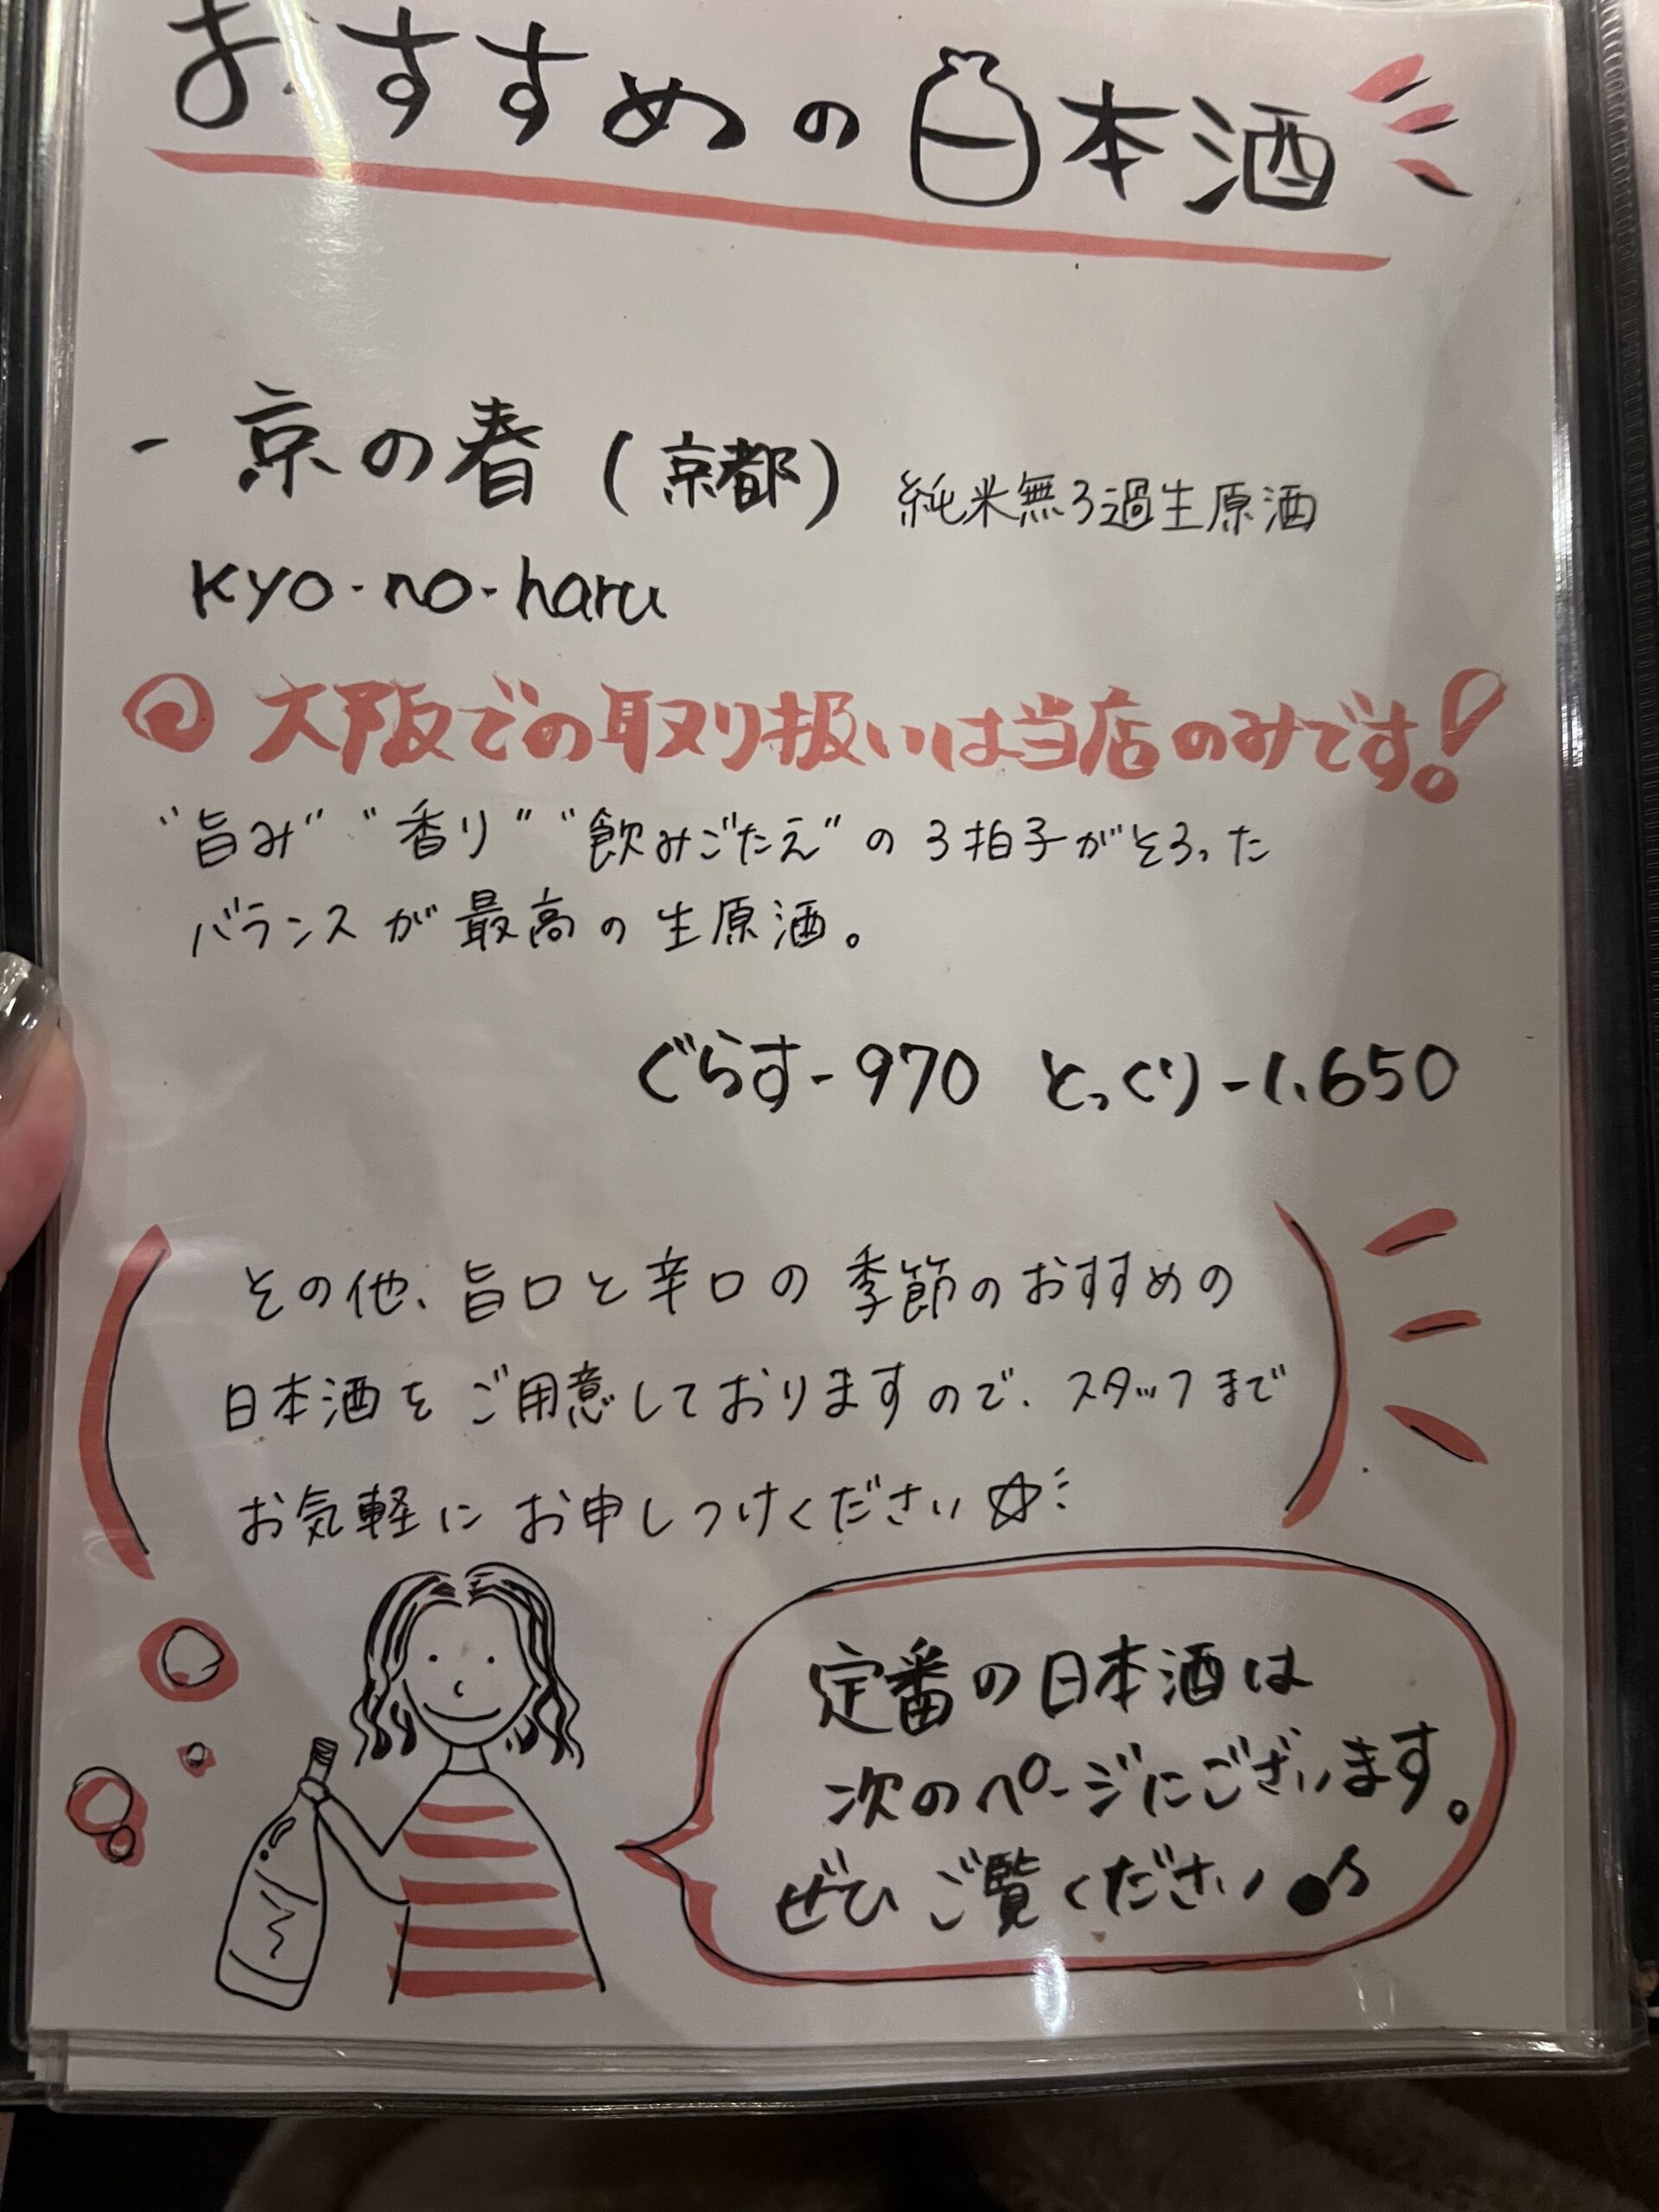 おすすめの日本酒
- 京の春 (京都) 純米無ろ過生原酒
kyo-no-haru
大阪での取り扱いは当店のみです!
"旨み" "香り" "飲みごたえ" の 3拍子がそろった
バランスが最高の生原酒。
ぐらす-970 とっくり-1.650
その他、旨口と辛口の季節のおすすめの
日本酒をご用意しておりますので、スタッフまで
お気軽にお申しつけください☆
定番の日本酒は
次のページにございます。
ぜひご覧ください♪